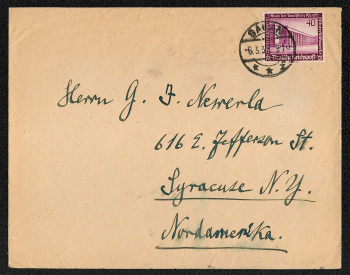 40
6.3.3
Deutsches Reich
Herrn G. J. Newerla
616 E. Jefferson St.
Syracuse N.Y.
Nordamerika.